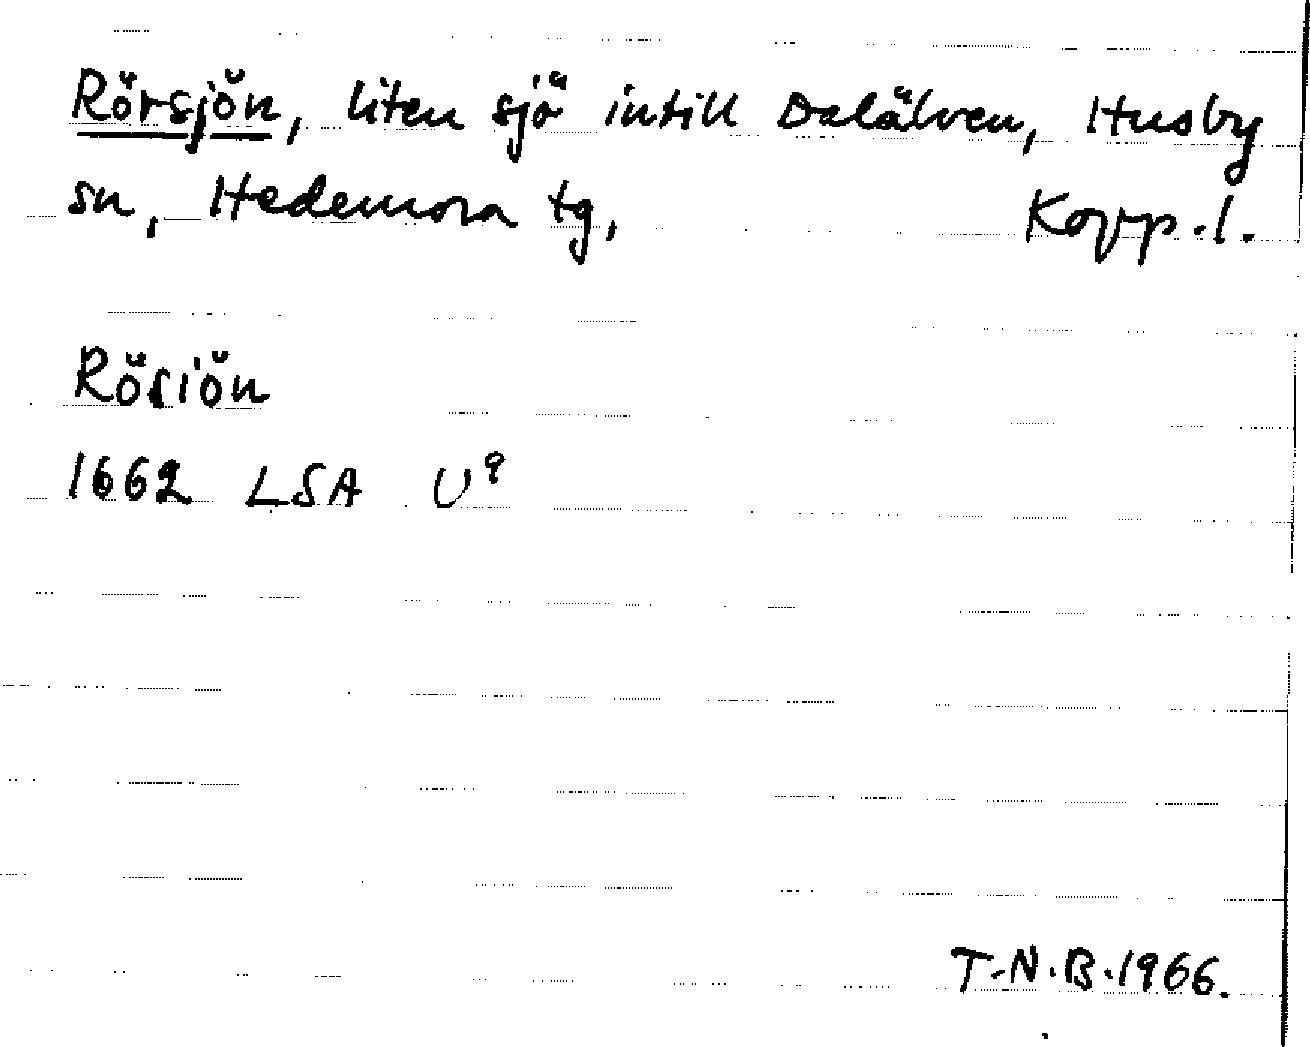 Rörsjön, liten sjö intill Dalälven, Husby
sn, Hedemora tg, Kopp.l.
Rösiön
1662 LSA U⁹
T.N.B.1966.